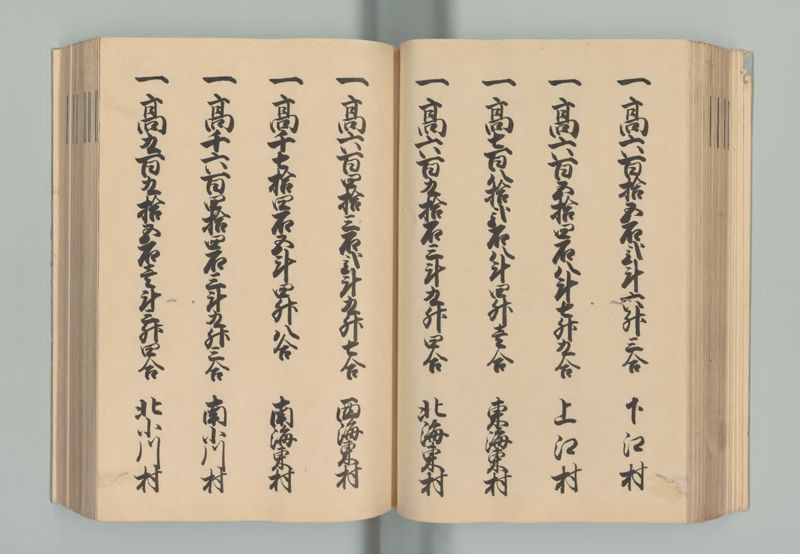 一高六百拾五石弐斗六升三合 下江村
一高六百五拾四石八斗七升九合 上江村
一高七百八拾弐石八斗四升壱合 東海東村
一高六百九拾石三斗九升四合 北海東村
一高六百四拾三石弐斗九升七合 西海東村
一高千七拾四石五斗四升八合 南海東村
一高千六百四拾四石三斗九升三合 南小川村
一高九百九拾五石壱斗三升四合 北小川村